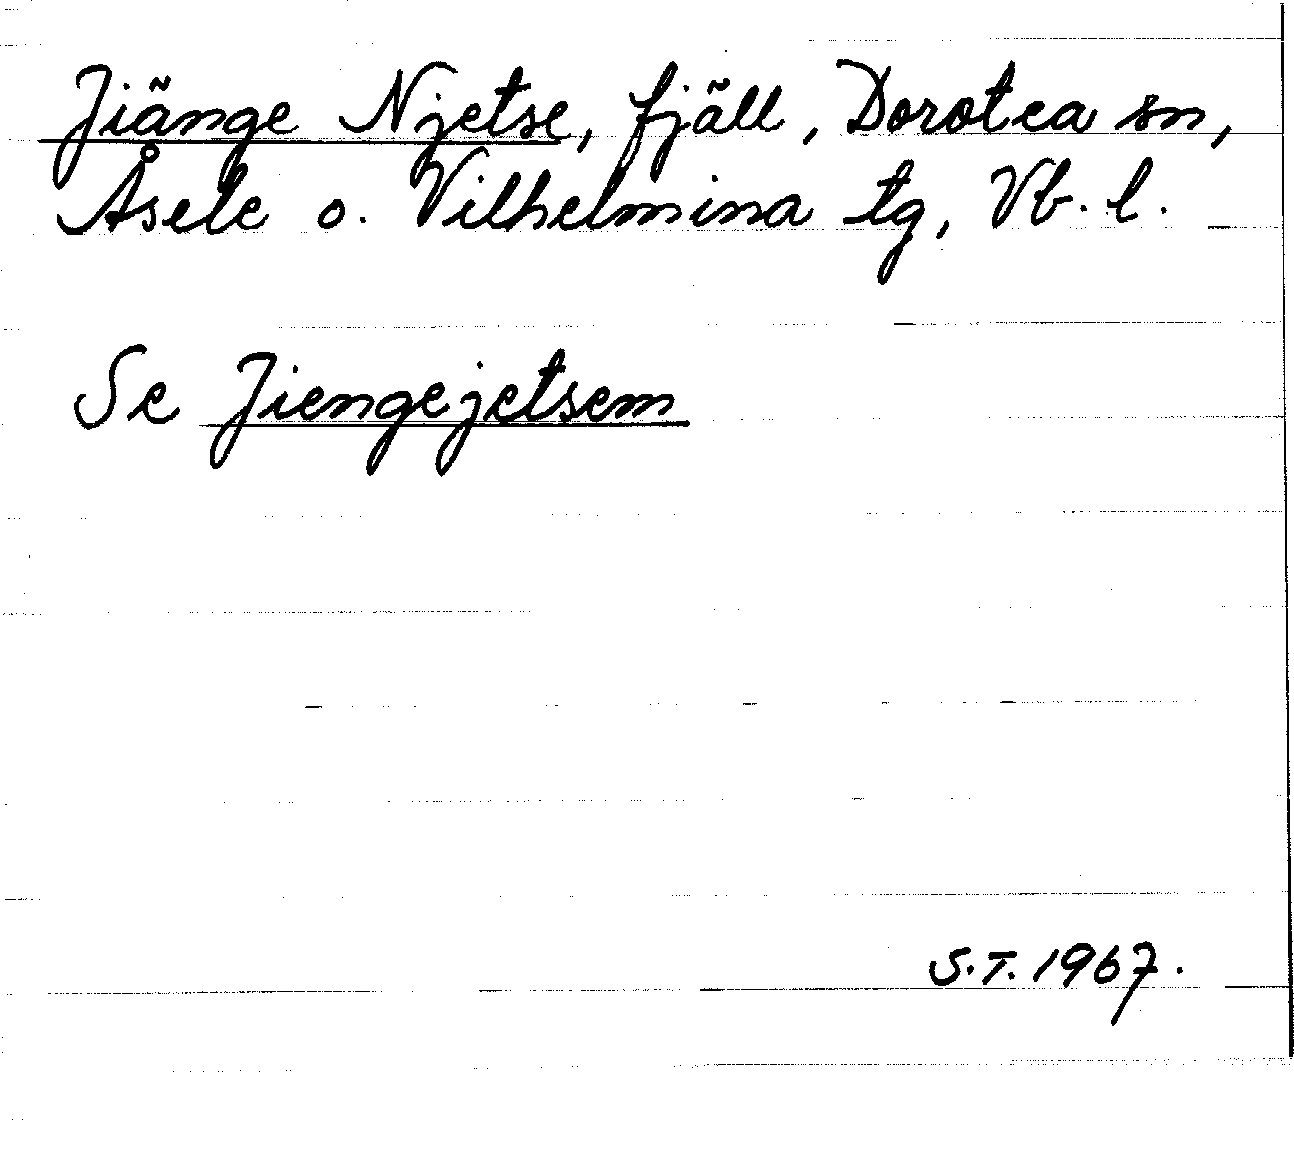 Jiänge Njetse, fjäll, Dorotea sn,
Åsele o. Vilhelmina tg, Vb. l.
Se Jiengejetsem
S.T. 1967.